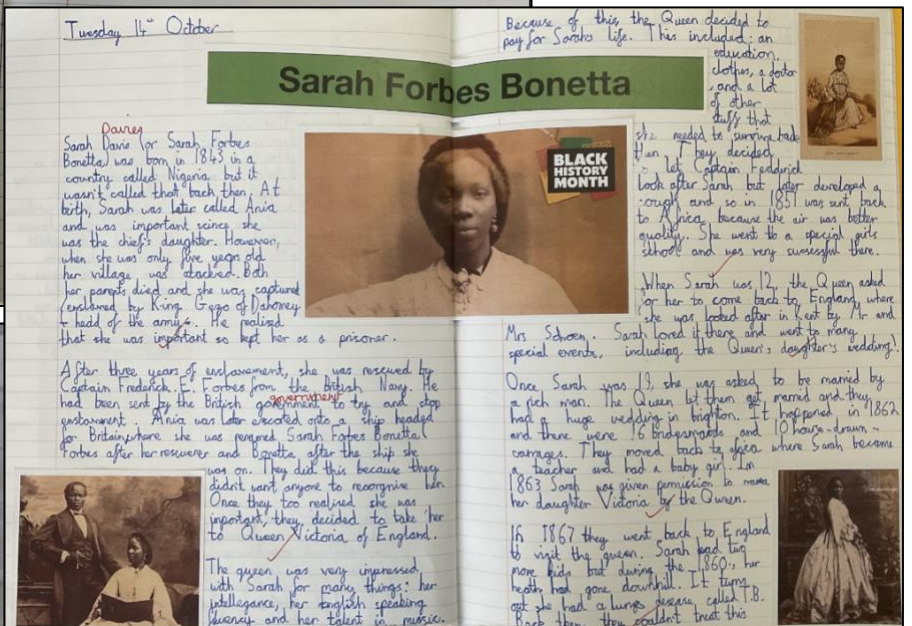 Tuesday 14th October
Sarah Forbes Bonetta
BLACK
HISTORY
MONTH
Davies
Sarah Davie (or Sarah Forbes
Bonetta) was born in 1843 in a
country called Nigeria but it
wasn't called that back then. At
birth, Sarah was later called Ania
and was important scince she
was the chief's daughter. However,
when she was only five years old
her village was attacked. Both
her parents died and she was captured
enslaved by King Gezo of Dahomey
+ head of the army. He realised
that she was important so kept her as a prisoner.
After three years of enslavement, she was rescued by
Captain Frederick. E. Forbes from the British Navy. He
had been sent by the British government to try and stop
enslavement. Ania was later escorted onto a ship headed
for Britain where she was renamed Sarah Forbes Bonetta.
Forbes after her rescuerer and Bonetta after the ship she
was on. They did this because they
didn't want anyone to recognise her.
Once they too realised she was
important, they decided to take her
to Queen Victoria of England.
The queen was very impressed
with Sarah for many things: her
intellegance, her English speaking
fluency and her talent in music.
Because of this, the Queen decided to
pay for Sarah's life. This included: an
education,
clothes, a doctor
, and a lot
of other
stuff that
she needed to survive back
then. They decided
let Captain Frederick
look after Sarah but later developed a
cough and so in 1851 was sent back
to Africa because the air was better
quality. She went to a special girls
school and was very successful there.
When Sarah was 12, the Queen asked
for her to come back to England, where
she was looked after in Kent by Mr and
Mrs Schoen. Sarah loved it there and went to many
special events, including the Queen's daughter's wedding!
Once Sarah was 19, she was asked to be married by
a rich man. The Queen let them get married and they
had a huge wedding in brighton. It happened in 1862
and there were 16 bridesmaids and 10 horse-drawn-
carrages. They moved back to africa where Sarah became
a teacher and had a baby girl. In
1863 Sarah was given permission to name
her daughter Victoria by the Queen.
In 1867 they went back to England
to visit the queen. Sarah had two
more kids but during the 1860s, her
heath had gone downhill. It turns
out she had a lungs desease called T.B.
Back then, they couldn't treat this